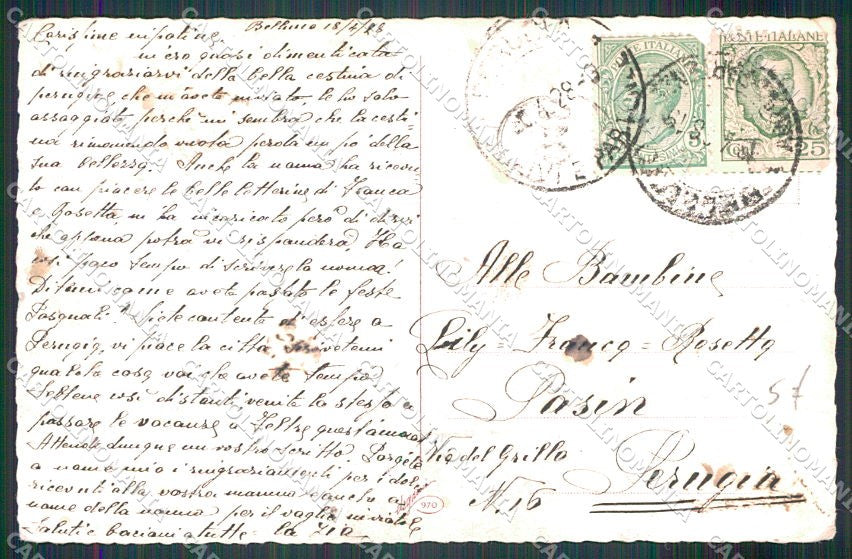 Belluno 18/4/28
Carissime nipotine
m'ero quasi dimenticata
di ringraziarvi della bella cestina di
perugine che m'avete inviato le ho solo
assaggiate perché mi sembra che la cesti-
na rimanendo vuota perda un po' della
sua bellezza. Anche la nonna ha ricevu-
to con piacere le belle letterine di Franca
e Rosetta, m'ha incaricato però di dirvi
che appena potrà vi risponderà. Ha
così poco tempo di scrivere la nonna!
Ditemi come avete passato le feste
Pasquali. Siete contente d'essere a
Perugia, vi piace la città scrivetemi
qualche cosa voi che avete tempo
Sebbene così distanti venite lo stesso a
passare le vacanze a Feltre quest'anno?
Attendo dunque un vostro scritto. Porgete
a nome mio i ringraziamenti per i dol-
ricevuti alla vostra mamma e anche a
nome della nonna per il vaglia inviatole
Saluti e bacioni a tutte la Zia
Alle Bambine
Lily - Franca = Rosetta
Pasin
Via del Grillo
N. 16
Perugia
57
970
POSTE ITALIANE
POSTE ITALIANE
5
CENT. 25
28
CARTOLINOMANIA